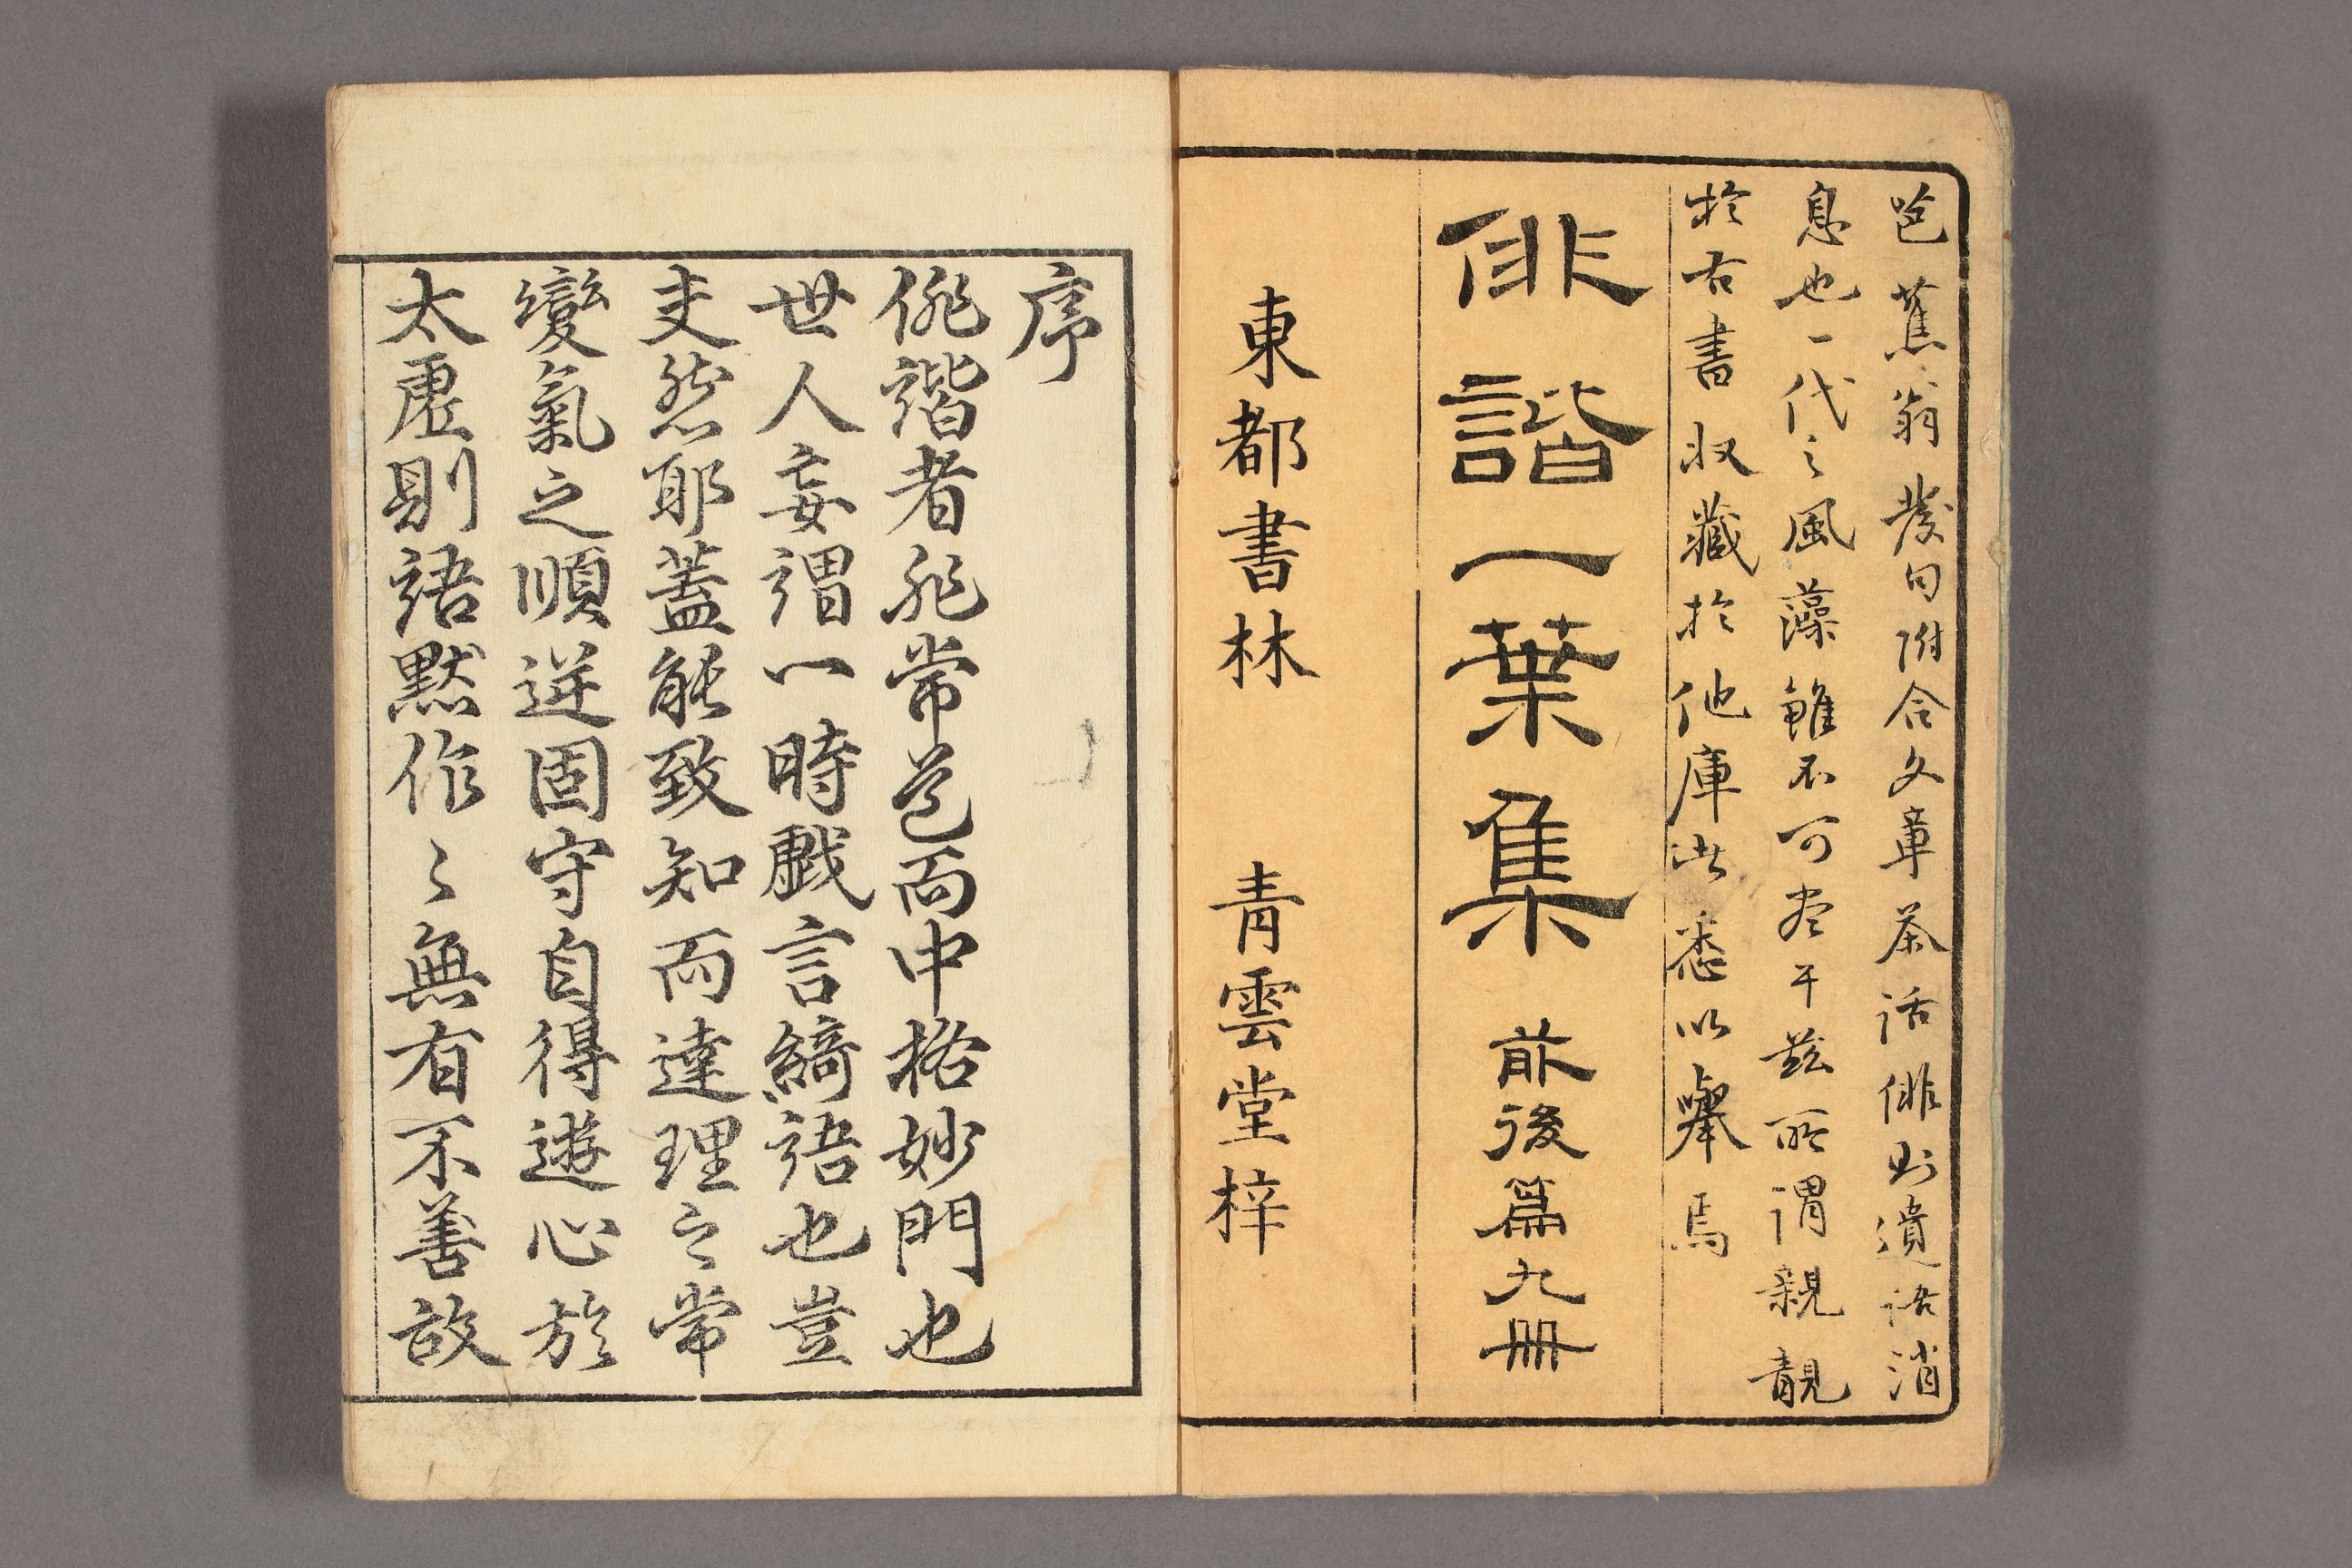 芭蕉翁發句附合文章茶話俳則遺語消
息也一代之風藻雖不可尽于茲所謂親覩
於右書収藏於他庫此悉以擧焉
俳諧一葉集 前後篇九冊
東都書林 青雲堂梓
序
俳諧者非常道而中格妙門也
世人妄謂一時戲言綺語也豈
夫然耶蓋能致知而達理之常
變氣之順逆固守自得遊心於
太虛則語默作々無有不善故